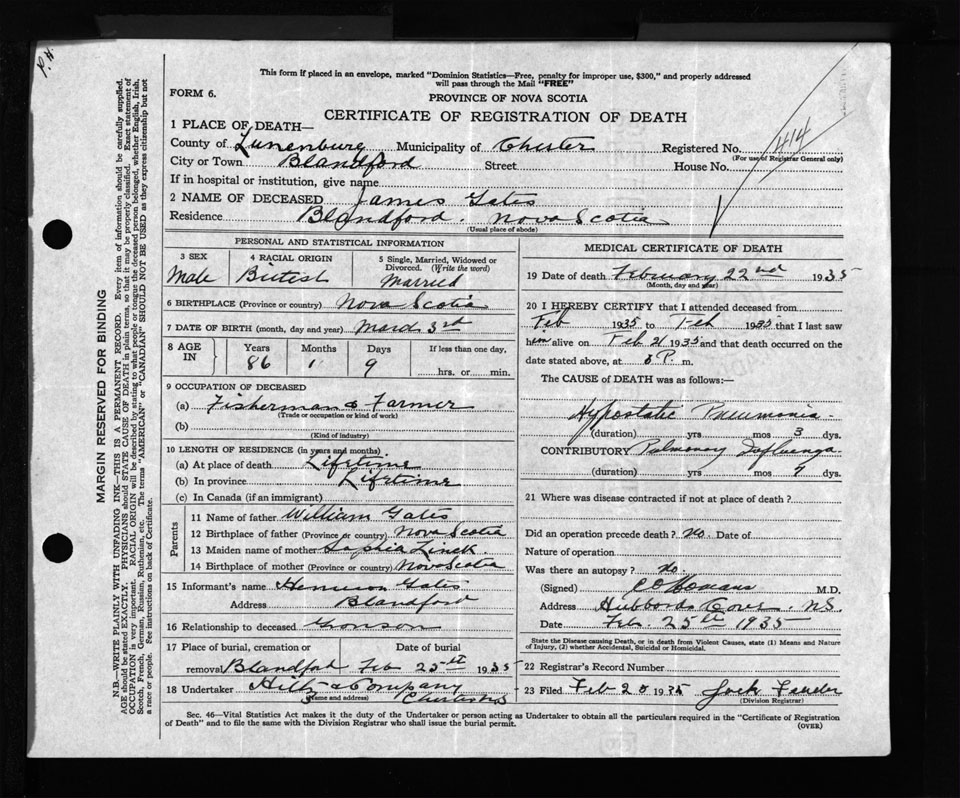 P.H.
This form if placed in an envelope, marked "Dominion Statistics—Free, penalty for improper use, $300," and properly addressed
will pass through the Mail "FREE"
FORM 6.
PROVINCE OF NOVA SCOTIA
CERTIFICATE OF REGISTRATION OF DEATH
1 PLACE OF DEATH—
County of Lunenburg Municipality of Chester Registered No. 414
(For use of Registrar General only)
City or Town Blandford Street House No.
If in hospital or institution, give name
2 NAME OF DECEASED James Gates
Residence Blandford. Nova Scotia
(Usual place of abode)
PERSONAL AND STATISTICAL INFORMATION
3 SEX 4 RACIAL ORIGIN 5 Single, Married, Widowed or Divorced. (Write the word)
Male British Married
6 BIRTHPLACE (Province or country) Nova Scotia
7 DATE OF BIRTH (month, day and year) 3rd
8 AGE IN Years Months Days If less than one day,
86 1 9 hrs. or min.
9 OCCUPATION OF DECEASED
(a) Fisherman & Farmer
(Trade or occupation or kind of work)
(b)
(Kind of industry)
10 LENGTH OF RESIDENCE (in years and months)
(a) At place of death Lifetime
(b) In province Lifetime
(c) In Canada (if an immigrant)
Parents
11 Name of father William Gates
12 Birthplace of father (Province or country) Nova Scotia
13 Maiden name of mother Sophia Zinck.
14 Birthplace of mother (Province or country) Nova Scotia
15 Informant's name Gates
Address Blandford
16 Relationship to deceased
17 Place of burial, cremation or Date of burial
removal Blandford Feb 25 1935
18 Undertaker & Company
(Name and address) Chester NS
MEDICAL CERTIFICATE OF DEATH
19 Date of death February 22nd 1935
(Month, day and year)
20 I HEREBY CERTIFY that I attended deceased from
Feb 1935 to Feb 1935 that I last saw
him alive on Feb 21 1935 and that death occurred on the
date stated above, at 8 P. m.
The CAUSE of DEATH was as follows:—
Hypostatic Pneumonia.
(duration) yrs mos 3 dys.
CONTRIBUTORY Pulmonary Influenza
(duration) yrs mos 9 dys.
21 Where was disease contracted if not at place of death?
Did an operation precede death? No. Date of
Nature of operation
Was there an autopsy? No
(Signed) M.D.
Address Hubbards Cove. NS
Date Feb. 25th 1935
State the Disease causing Death, or in death from Violent Causes, state (1) Means and Nature
of Injury, (2) whether Accidental, Suicidal or Homicidal.
22 Registrar's Record Number
23 Filed Feb 1935
(Division Registrar)
Sec. 46—Vital Statistics Act makes it the duty of the Undertaker or person acting as Undertaker to obtain all the particulars required in the "Certificate of Registration
of Death" and to file the same with the Division Registrar who shall issue the burial permit.
(OVER)
MARGIN RESERVED FOR BINDING
N.B.—WRITE PLAINLY WITH UNFADING INK—THIS IS A PERMANENT RECORD. Every item of information should be carefully supplied.
AGE should be stated EXACTLY. PHYSICIANS should STATE CAUSE OF DEATH in plain terms, so that it may be properly classified. Exact statement of
OCCUPATION is very important. RACIAL ORIGIN will be described by stating to what people or tongue the deceased person belonged, whether English, Irish,
Scotch, French, German, Russian, Ruthenian, etc. The terms "AMERICAN" or "CANADIAN" SHOULD NOT BE USED as they express citizenship but not
a race or people. See instructions on back of Certificate.